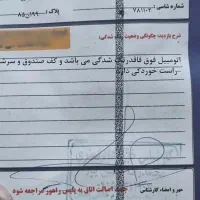 شماره شاسی : ۷۸۱۱۰۲
پلاک :
شرح بازدید: چگونگی وضعیت رنگ شدگی:
اتومبیل فوق فاقد رنگ شدگی می باشد و کف صندوق و سرشا
-راست خوردگی دارد
مهر و امضاء کارشناسی
جهت اصالت اتاق به پلیس راهور مراجعه شود